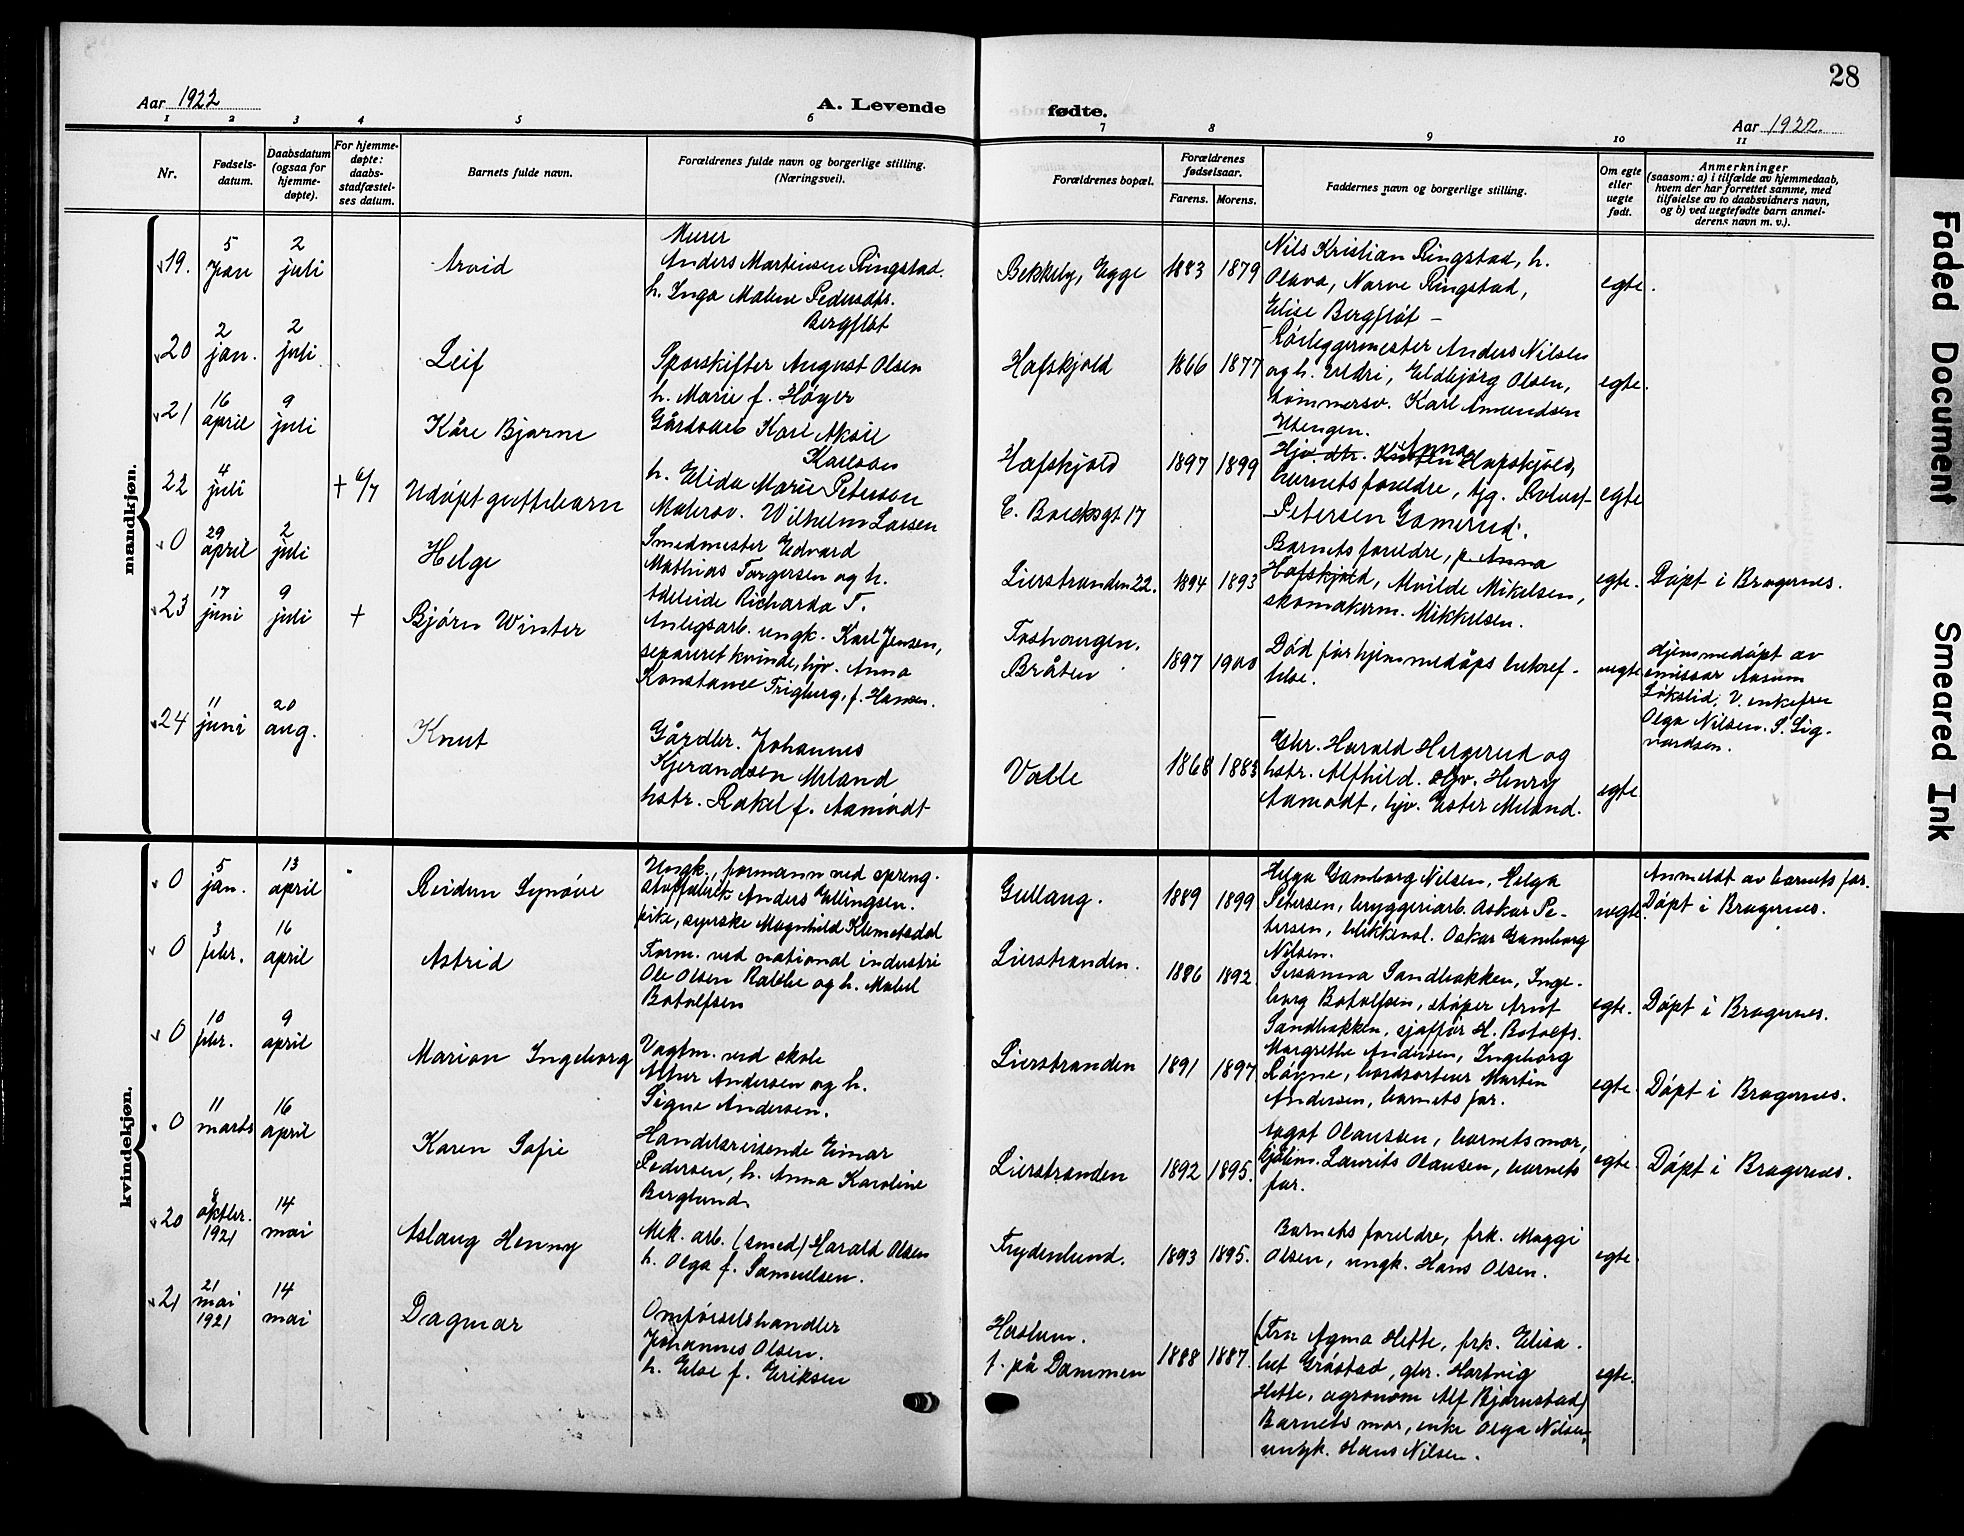 28
Aar 1922
A. Levende fødte.
Aar 1922.
1 2 3 4 5 6 7 8 9 10 11
Nr.
Fødsels-
datum.
Daabsdatum
(ogsaa for
hjemme-
døpte).
For hjemme-
døpte:
daabs-
stadfæstel-
ses datum.
Barnets fulde navn.
Forældrenes fulde navn og borgerlige stilling.
(Næringsvei).
Forældrenes bopæl.
Forældrenes
fødselsaar.
Farens. Morens.
Faddernes navn og borgerlige stilling.
Om egte
eller
uegte
født.
Anmerkninger
(saasom: a) i tilfælde av hjemmedaab,
hvem der har forrettet samme, med
tilføielse av to daabsvidners navn,
og b) ved uegtefødte barn anmel-
derens navn m. v.).
mandkjøn.
19.
5
jan
2
juli
Arvid
Murer
Anders Martinsen Ringstad.
h. Inga Maline Pedersdtr.
Bergfløt
Bekkeby, Egge
1883 1879
Nils Kristian Ringstad, h.
Olava, Narve Ringstad,
Elise Bergfløt –
egte.
20
2
jan.
2
juli
Leif
Sporskifter August Olsen
h. Marie f. Høyer
Hafskjold
1866 1877
Rørleggermester Anders Nilsen
og h. Uldri, Eldbjørg Olsen,
tømmersv. Karl Amundsen
Utengen.
egte.
21
16
april
9
juli
Kåre Bjarne
Gårdsarb Karl Aksel
Karlsen
h. Elida Marie Peterson
Hafskjold
1897 1899
Hjv. dtr. Anna Hafskjold,
barnets foreldre, tjg.
Petersen Gamerud.
egte
22
4
juli
+ 6/7
Udøpt guttebarn
Malersv. Wilhelm Larsen
C. Borchsgt 17
0
29
april
2
juli
Helge
Smedmester Edvard
Mathias Torgersen og h.
Adeleide Richarda T.
Lierstranden 22.
1894 1893
Barnets foreldre, p. Anna
Hafskjold, Alvilde Mikelsen,
skomakerm. Mikkelsen.
egte.
Døpt i Bragernes.
23
17
juni
9
juli
+
Bjørn Winter
Anlegsarb. ungk. Karl Jensen,
separeret kvinde, hjv. Anna
Konstance Trigburg, f. Hansen.
Toshaugen.
Bråten
1897 1900
Død før hjemmedåps bekref-
telse.
uegte
Hjemmedøpt av
emissær Aasum
Løkslid, V. enkefru
Olga Nilsen. S. Sig-
vardsen.
24
11
juni
20
aug.
Knut
Gårdbr. Johannes
Kjerandsen Meland
hstr. Rakel f. Aamodt
Valle
1868 1883
Gbr. Harald Helgerud og
hstr. Alfhild. Hjv. Henry
Aamodt, hjv. Ester Meland.
egte
kvindekjøn.
0
5
jan.
13
april
Reidun Synøve
Ungk., formann ved spreng-
stoffabrik Anders Ellingsen.
pike, syerske Magnhild Klemetsdal
Gullaug.
1889 1899
Helga Gamborg Nilsen, Helga
Petersen, bryggeriarb. Oskar Pe-
tersen, blikkensl. Oskar Gamborg
Nilsen.
uegte
Anmeldt av barnets far.
Døpt i Bragernes.
0
3
febr.
16
april
Astrid
Form. ved national industri
Ole Olsen Rabbe og h. Mabel
Botolfsen
Lierstranden.
1886 1892.
Susanna Sandbakken, Inge-
borg Botolfsen, støper Arnt
Sandbakken, sjaffør H. Botolfs.
egte.
Døpt i Bragernes.
0
10
febr.
9
april
Marion Ingeborg
Vagtm. ved skole
Alber Andersen og h.
Signe Andersen.
Lierstranden
1891 1897
Margrethe Andersen, Ingeborg
Røyne, bordsorterer Martin
Andersen, barnets far.
egte.
Døpt i Bragernes.
0
11
marts
16
april
Karen Sofie
Handelsreisende Einar
Pedersen, h. Anna Karoline
Berglund
Lierstranden
1892 1895.
Aagot Olaussen, barnets mor,
sjølm. Laurits Olausen, barnets
far.
egte.
Døpt i Bragernes.
20
8
oktbr.
1921
14
mai
Aslaug Henny
Mek. arb. (smed) Harald Olsen
h. Olga f. Samuelsen.
Frydenlund.
1893 1895.
Barnets foreldre, frk. Maggi
Olsen, ungk. Hans Olsen.
egte.
21
21
mai
1921
14
mai
Dagmar
Omførselshandler
Johannes Olsen.
h. Else f. Eriksen
Haslum.
f. på Dammen
1888 1887.
(Fru Agma Hette, frk. Elisa-
bet Gråstad, gbr. Hartvig
Hette, agronom Alf Bjørnstad)
Barnets mor, enke Olga Nilsen,
ungk. Hans Nilsen.
egte.
Faded Document
Smeared Ink